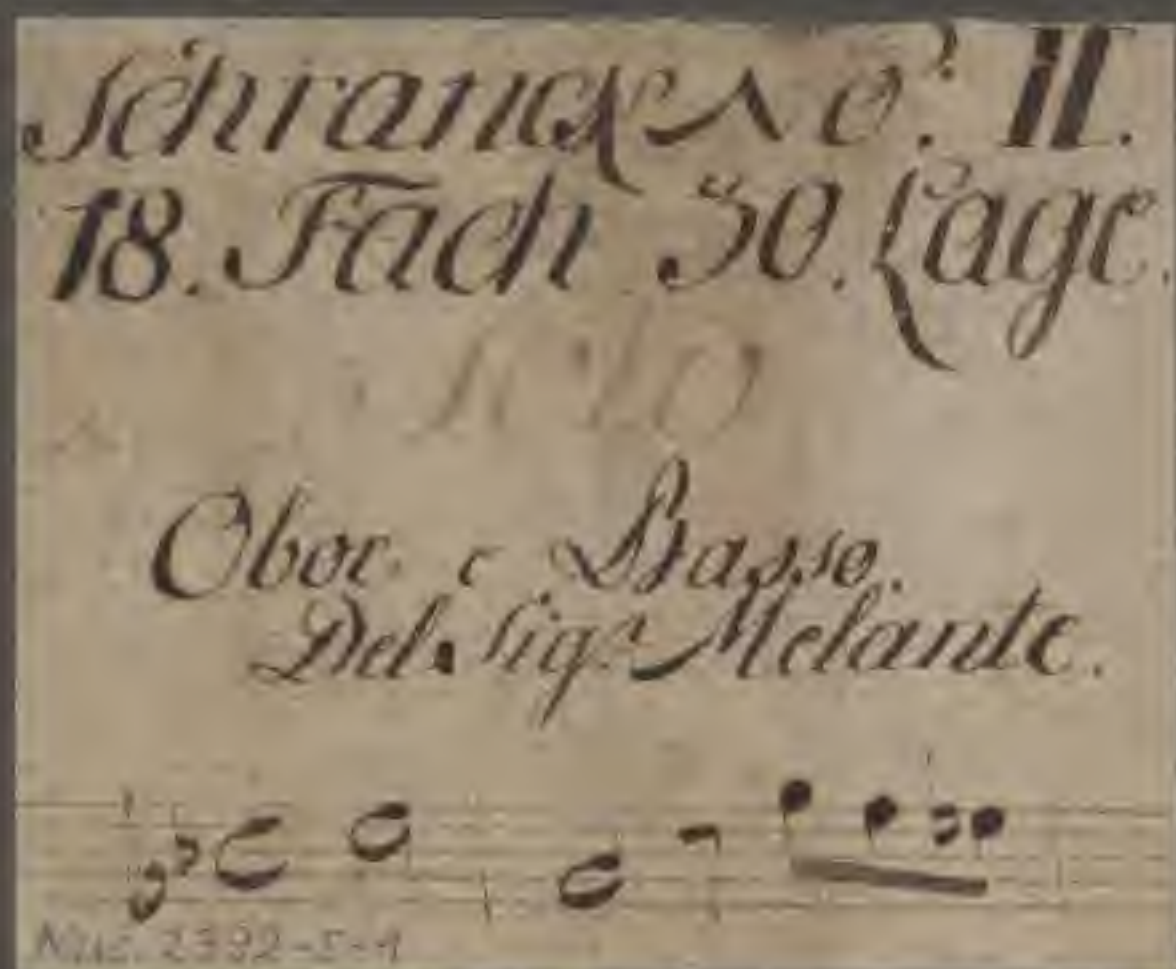 Schranck No: II.
18. Fach 30. Lage.
Oboe. e Basso.
Del. Sigr. Melante.
Mus. 2392-S-1